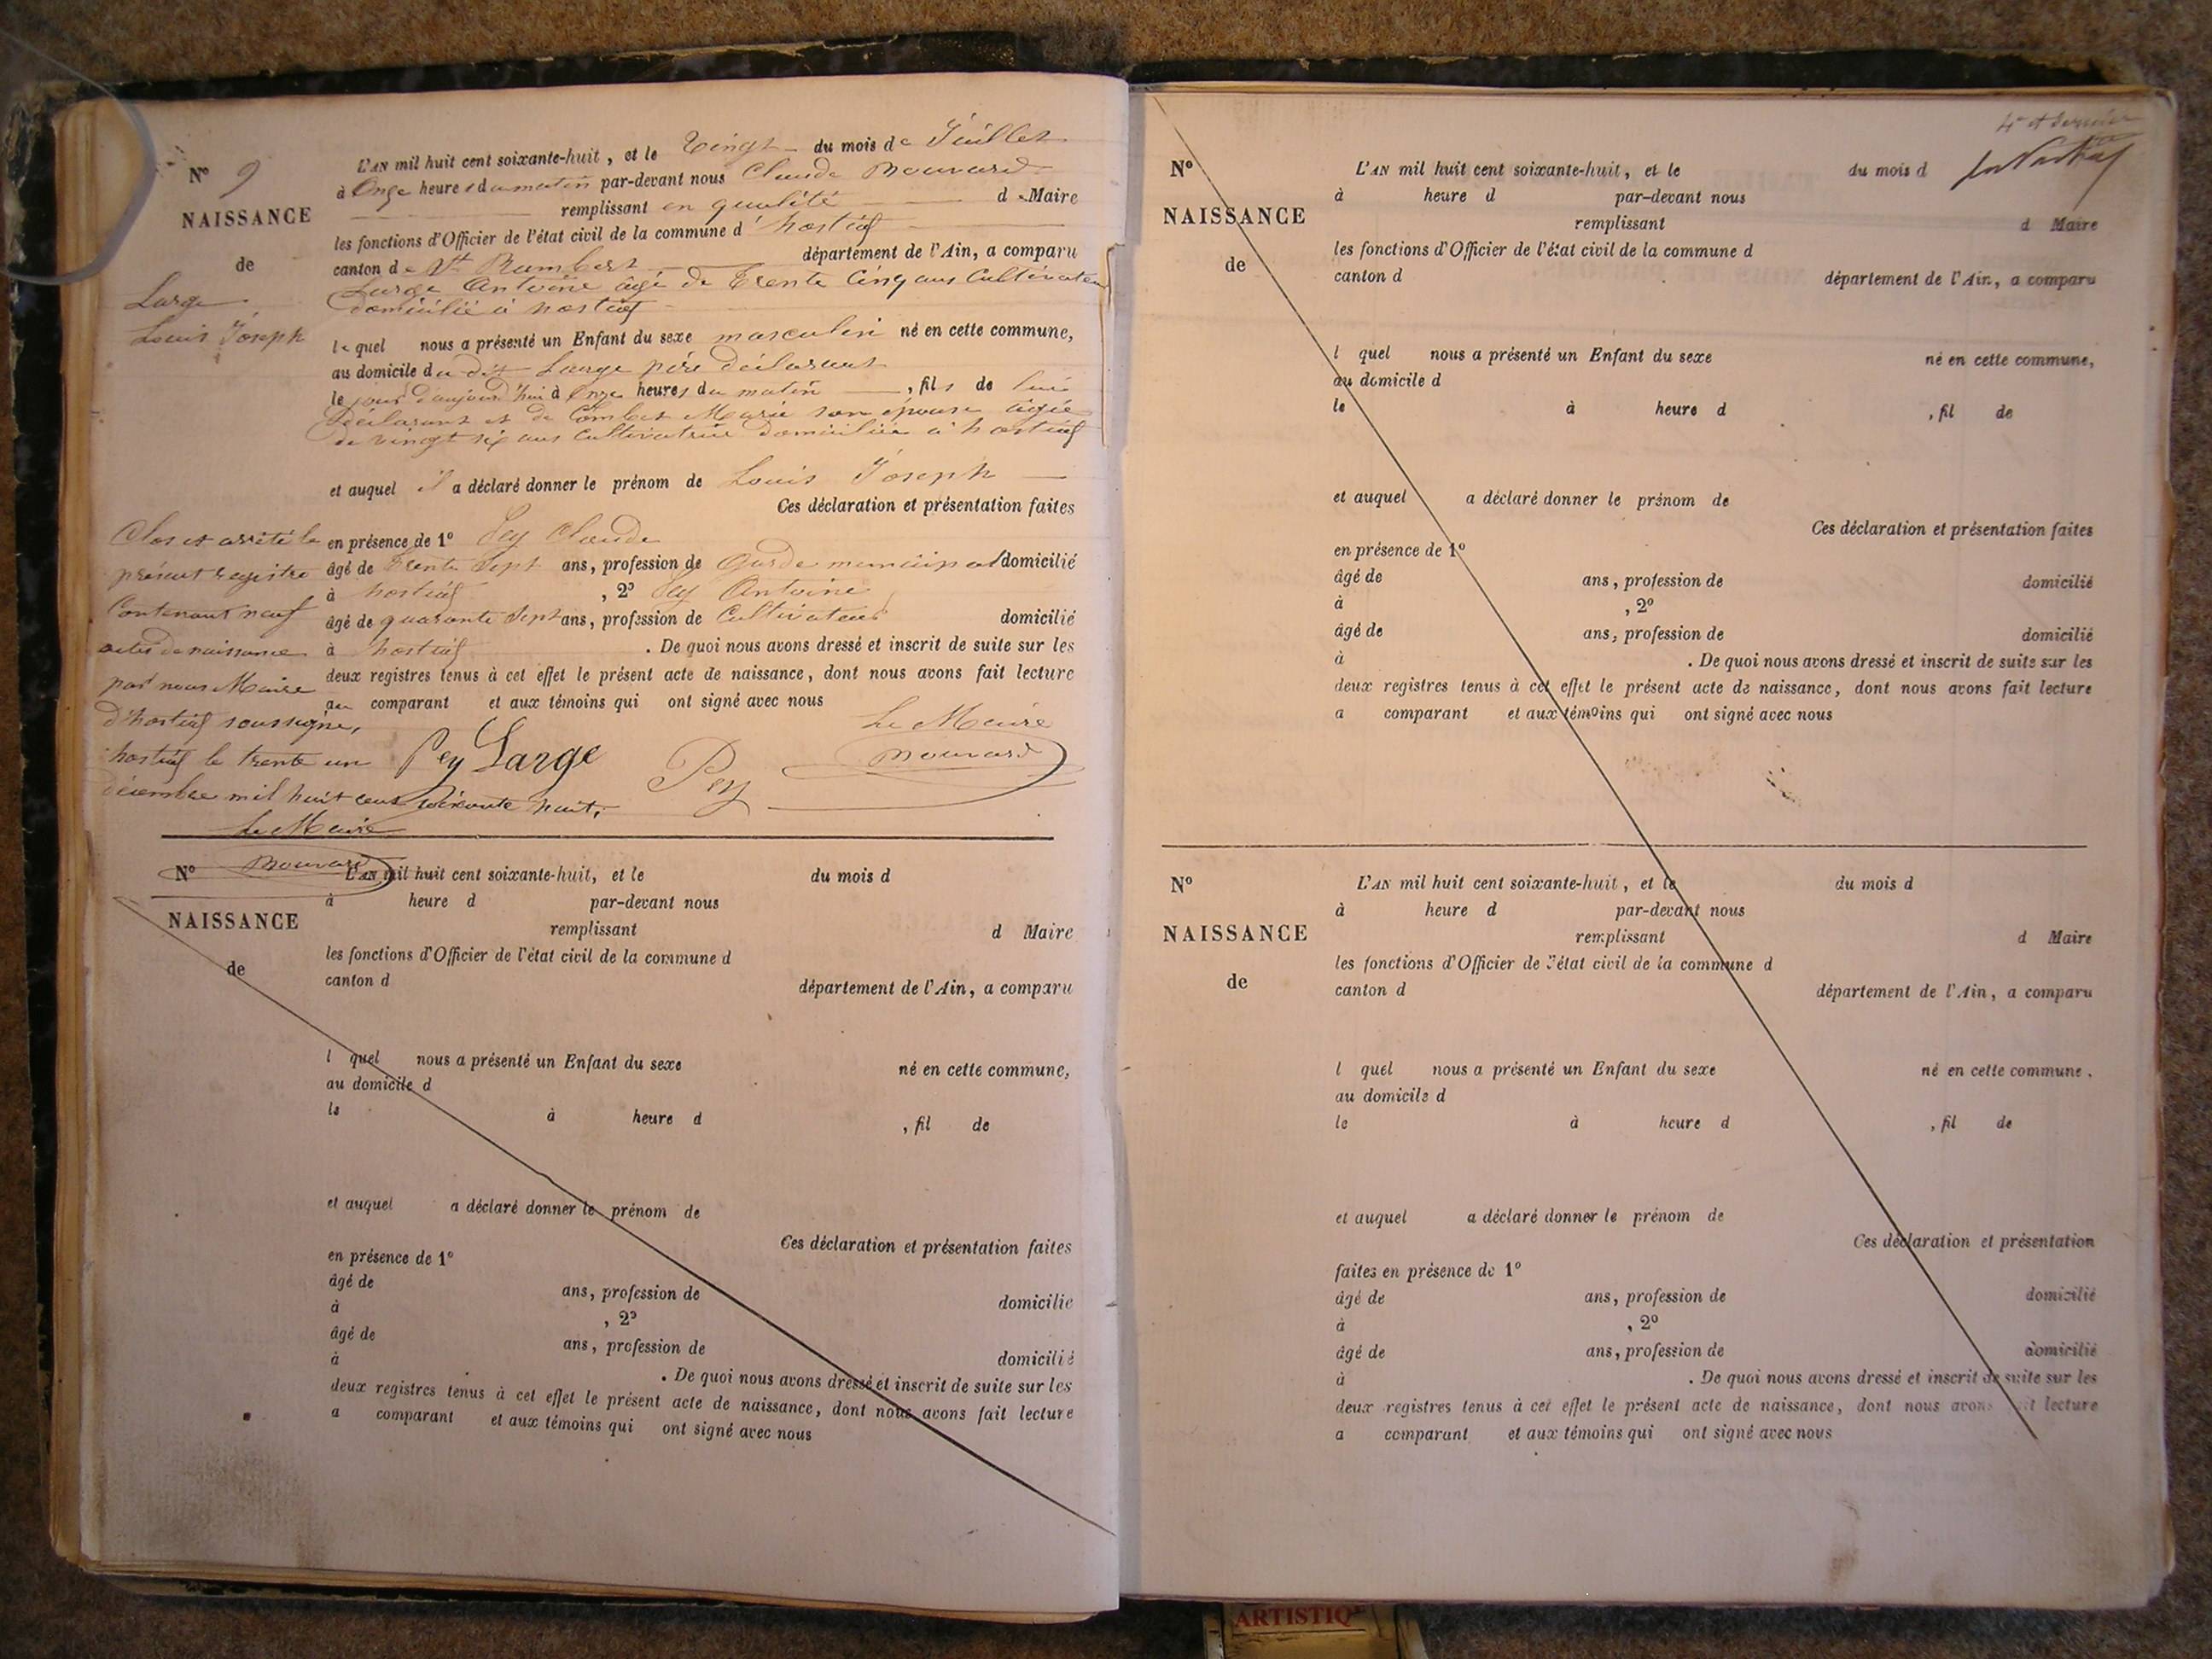 N° 9
NAISSANCE
de
Large
Louis Joseph
L'AN mil huit cent soixante-huit, et le Vingt du mois de Juillet
à Onze heures du matin par-devant nous Claude Mouvard
remplissant en qualité de Maire
les fonctions d'Officier de l'état civil de la commune d'hostiaz
canton de St Rambert département de l'Ain, a comparu
Large Antoine âgé de Trente Cinq ans Cultivateur
domicilié à hostiaz
lequel nous a présenté un Enfant du sexe masculin né en cette commune,
au domicile du dit Large père déclarant
le jour d'aujourd'hui à Onze heures du matin, fils de lui
Déclarant et de Combet Marie son épouse âgée
de vingt six ans cultivatrice domiciliée à hostiaz
et auquel il a déclaré donner le prénom de Louis Joseph
Ces déclaration et présentation faites
en présence de 1° Pey Claude
âgé de Trente Sept ans, profession de Garde municipal domicilié
à hostiaz, 2° Pey Antoine
âgé de quarante Sept ans, profession de Cultivateur domicilié
à hostiaz. De quoi nous avons dressé et inscrit de suite sur les
deux registres tenus à cet effet le présent acte de naissance, dont nous avons fait lecture
au comparant et aux témoins qui ont signé avec nous
Le Maire
Pey Large Pey Mouvard
Clos et arrêté le
présent registre
Contenant neuf
actes de naissance
par nous Maire
d'hostiaz soussigné,
hostiaz le trente un
décembre mil huit cent soixante huit.
Le Maire
Mouvard
N°
NAISSANCE
de
L'AN mil huit cent soixante-huit, et le du mois d
à heure d par-devant nous
remplissant d Maire
les fonctions d'Officier de l'état civil de la commune d
canton d département de l'Ain, a comparu
l quel nous a présenté un Enfant du sexe né en cette commune,
au domicile d
le à heure d , fil de
et auquel a déclaré donner le prénom de
Ces déclaration et présentation faites
en présence de 1°
âgé de ans, profession de domicilié
à , 2°
âgé de ans, profession de domicilié
à . De quoi nous avons dressé et inscrit de suite sur les
deux registres tenus à cet effet le présent acte de naissance, dont nous avons fait lecture
a comparant et aux témoins qui ont signé avec nous
4e et dernier
N°
NAISSANCE
de
L'AN mil huit cent soixante-huit, et le du mois d
à heure d par-devant nous
remplissant d Maire
les fonctions d'Officier de l'état civil de la commune d
canton d département de l'Ain, a comparu
l quel nous a présenté un Enfant du sexe né en cette commune,
au domicile d
le à heure d , fil de
et auquel a déclaré donner le prénom de
Ces déclaration et présentation faites
en présence de 1°
âgé de ans, profession de domicilié
à , 2°
âgé de ans, profession de domicilié
à . De quoi nous avons dressé et inscrit de suite sur les
deux registres tenus à cet effet le présent acte de naissance, dont nous avons fait lecture
a comparant et aux témoins qui ont signé avec nous
N°
NAISSANCE
de
L'AN mil huit cent soixante-huit, et le du mois d
à heure d par-devant nous
remplissant d Maire
les fonctions d'Officier de l'état civil de la commune d
canton d département de l'Ain, a comparu
l quel nous a présenté un Enfant du sexe né en cette commune.
au domicile d
le à heure d , fil de
et auquel a déclaré donner le prénom de
Ces déclaration et présentation
faites en présence de 1°
âgé de ans, profession de domicilié
à , 2°
âgé de ans, profession de domicilié
à . De quoi nous avons dressé et inscrit de suite sur les
deux registres tenus à cet effet le présent acte de naissance, dont nous avons fait lecture
a comparant et aux témoins qui ont signé avec nous
ARTISTIQ